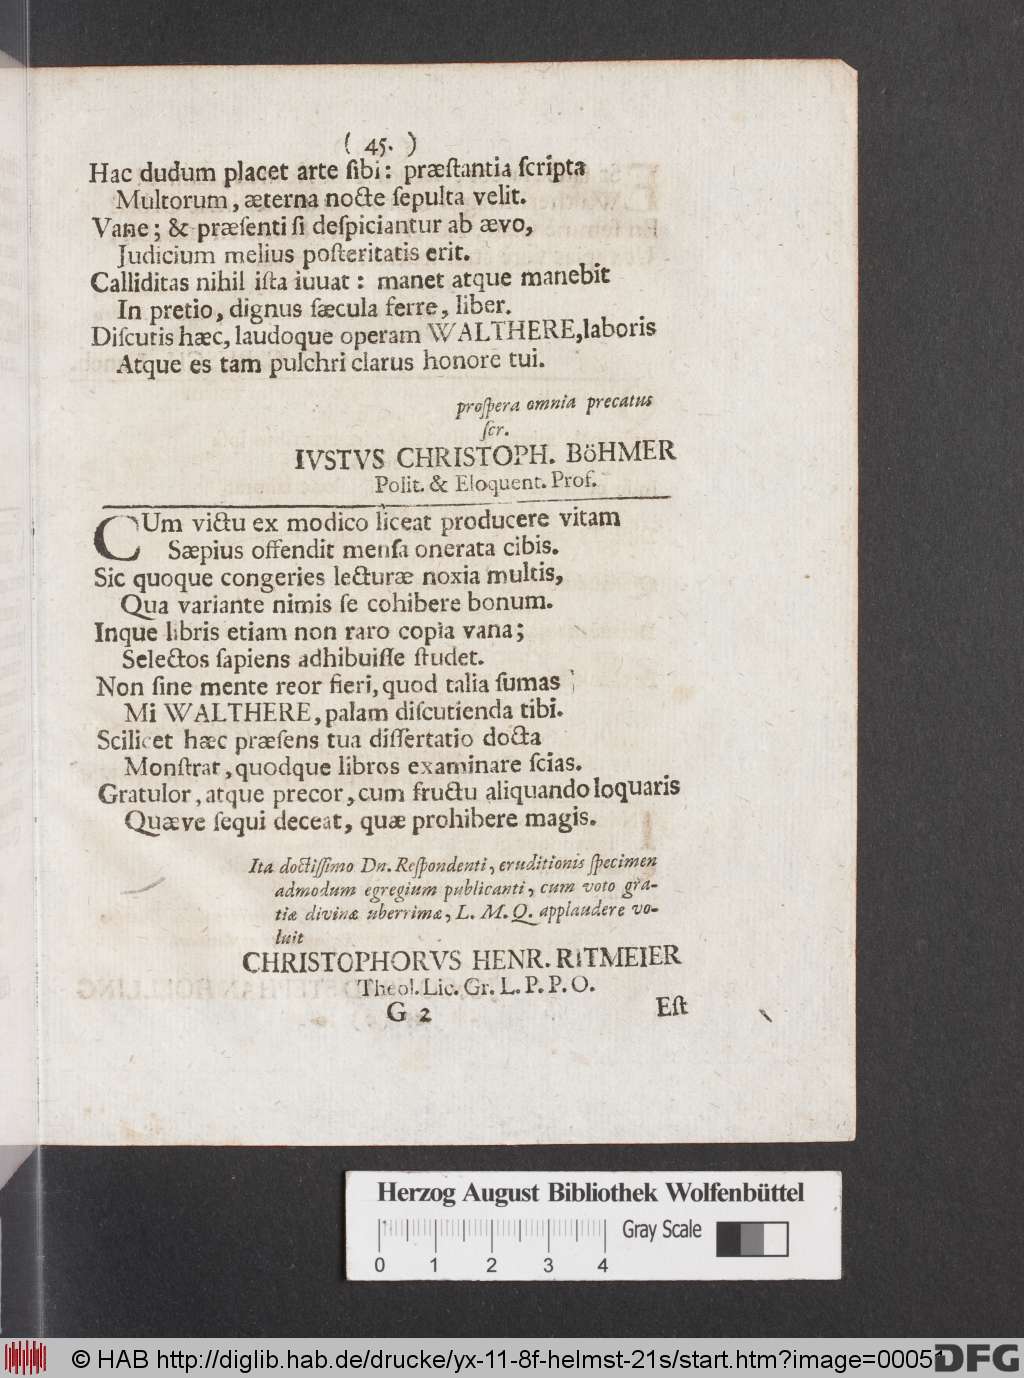 ( 45. )
Hac dudum placet arte ſibi: præſtantia ſcripta
Multorum, æterna nocte ſepulta velit.
Vane; & præſenti ſi deſpiciantur ab ævo,
Judicium melius poſteritatis erit.
Calliditas nihil iſta iuuat: manet atque manebit
In pretio, dignus ſæcula ferre, liber.
Diſcutis hæc, laudoque operam WALTHERE, laboris
Atque es tam pulchri clarus honore tui.
proſpera omnia precatus
ſcr.
IVSTVS CHRISTOPH. BöHMER
Polit. & Eloquent. Prof.
CUm victu ex modico liceat producere vitam
Sæpius offendit menſa onerata cibis.
Sic quoque congeries lecturæ noxia multis,
Qua variante nimis ſe cohibere bonum.
Inque libris etiam non raro copia vana;
Selectos ſapiens adhibuiſſe ſtudet.
Non ſine mente reor fieri, quod talia ſumas
Mi WALTHERE, palam diſcutienda tibi.
Scilicet hæc præſens tua diſſertatio docta
Monſtrat, quodque libros examinare ſcias.
Gratulor, atque precor, cum fructu aliquando loquaris
Quæve ſequi deceat, quæ prohibere magis.
Ita doctiſſimo Dn. Reſpondenti, eruditionis ſpecimen
admodum egregium publicanti, cum voto gra-
tiæ divinæ uberrimæ, L. M. Q. applaudere vo-
luit
CHRISTOPHORVS HENR. RITMEIER
Theol. Lic. Gr. L. P. P. O.
G 2 Eſt
Herzog August Bibliothek Wolfenbüttel
Gray Scale
0 1 2 3 4
© HAB http://diglib.hab.de/drucke/yx-11-8f-helmst-21s/start.htm?image=00051
DFG